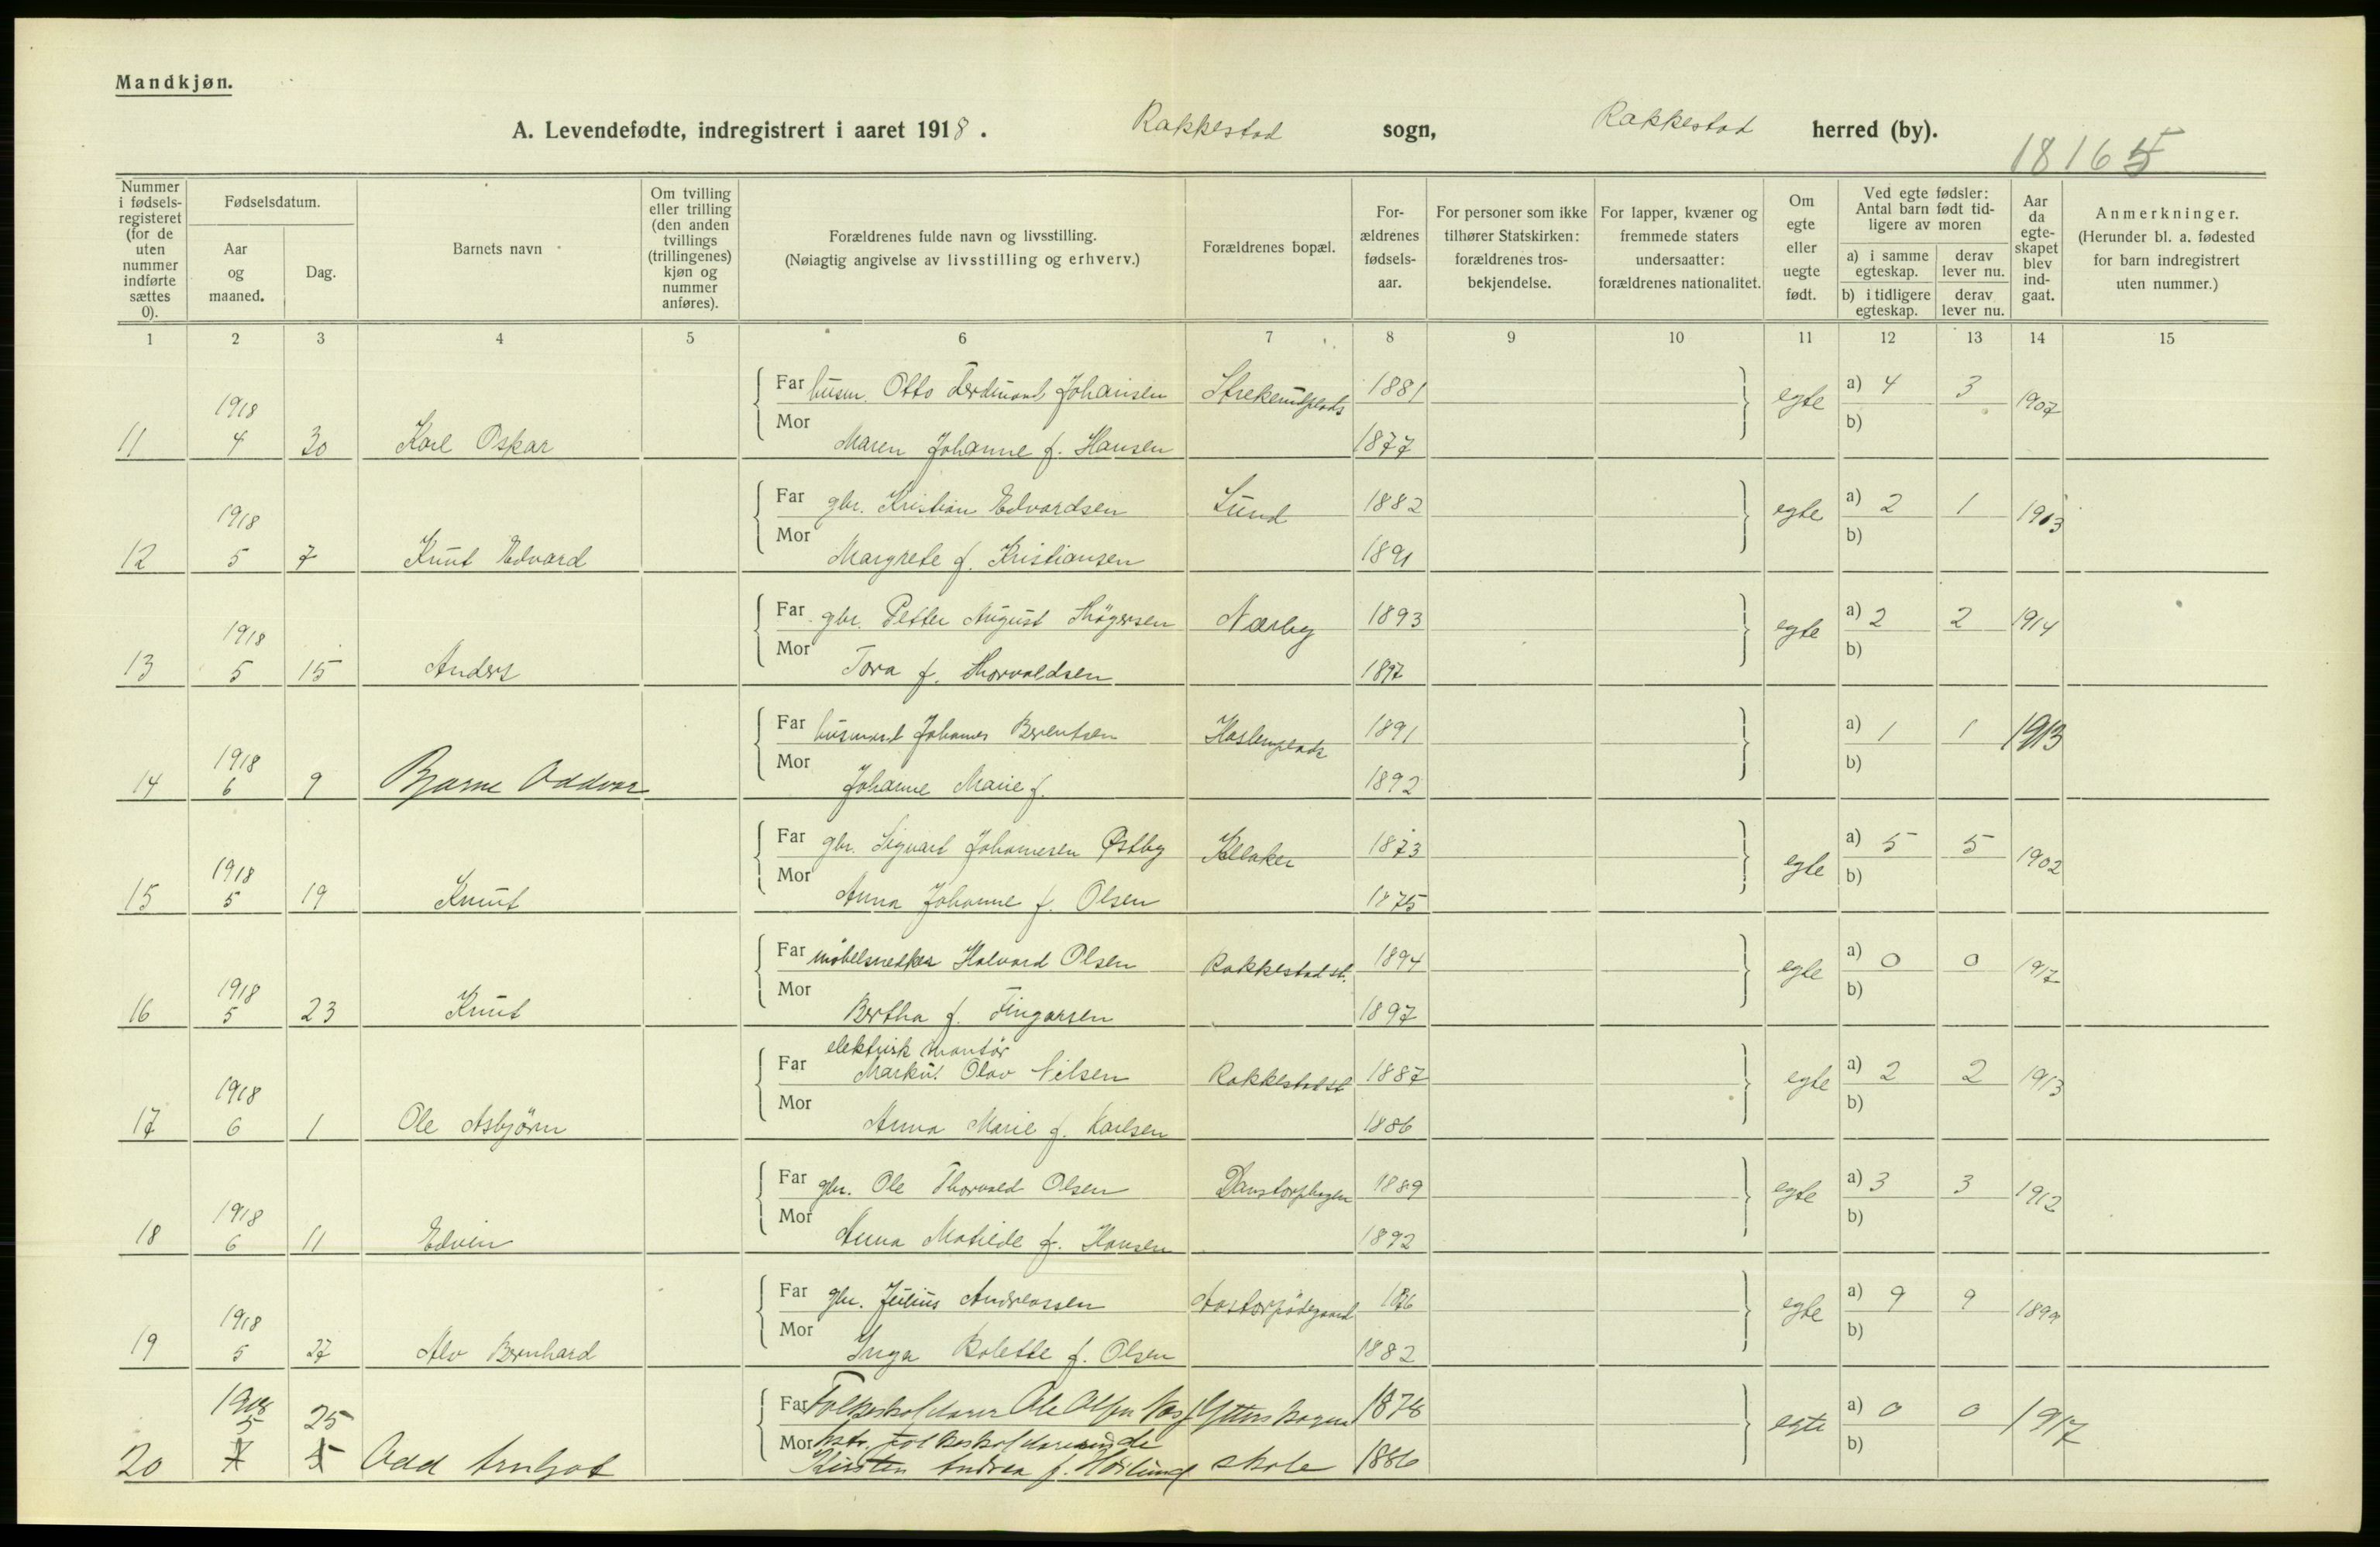 Mandkjøn.
A. Levendefødte, indregistrert i aaret 1918. Rakkestad sogn, Rakkestad herred (by).
18165
Nummer i fødsels-registeret (for de uten nummer indførte sættes 0).
Fødselsdatum.
Aar og maaned.
Dag.
Barnets navn
Om tvilling eller trilling (den anden tvillings (trillingenes) kjøn og nummer anføres).
Forældrenes fulde navn og livsstilling.
(Nøiagtig angivelse av livsstilling og erhverv.)
Forældrenes bopæl.
For-ældrenes fødsels-aar.
For personer som ikke tilhører Statskirken: forældrenes tros-bekjendelse.
For lapper, kvæner og fremmede staters undersaatter: forældrenes nationalitet.
Om egte eller uegte født.
Ved egte fødsler: Antal barn født tid-ligere av moren
a) i samme egteskap.
derav lever nu.
b) i tidligere egteskap.
derav lever nu.
Aar da egte-skapet blev ind-gaat.
Anmerkninger.
(Herunder bl. a. fødested for barn indregistrert uten nummer.)
1 2 3 4 5 6 7 8 9 10 11 12 13 14 15
Far husm. Otto Ferdinand Johansen 1881 egte a) 4 3 1907
11 1918 4 30 Karl Oskar Mor Maren Johanne f. Hansen 1877 b)
Far gbr. Kristian Edvardsen Lund 1882 egte a) 2 1 1913
12 1918 5 7 Knut Edvard Mor Margrete f. Kristiansen 1891 b)
Far gbr. Petter August Thøgersen Nærby 1893 egte a) 2 2 1914
13 1918 5 15 Anders Mor Tora f. Thorvaldsen 1897 b)
Far husmand Johannes Berentsen 1891 a) 1 1 1913
14 1918 6 9 Bjarne Oddvar Mor Johanne Marie f. 1892 b)
Far gbr. Sigvart Johannesen Østby 1873 egte a) 5 5 1902
15 1918 5 19 Knut Mor Anna Johanne f. Olsen 1875 b)
Far møbelsnedker Halvard Olsen Rakkestad st. 1894 egte a) 0 0 1917
16 1918 5 23 Knut Mor Bertha f. Fingarsen 1897 b)
elektrisk montør
Far Markus Olav Nilsen Rakkestad st 1887 egte a) 2 2 1913
17 1918 6 1 Ole Asbjørn Mor Anna Marie f. Karlsen 1886 b)
Far gbr. Ole Thorvald Olsen 1889 egte a) 3 3 1912
18 1918 6 11 Edvin Mor Anna Matilde f. Hansen 1892 b)
Far gbr. Julius Andreassen egte a) 9 9 1899
19 1918 5 27 Alv Bernhard Mor Inga Bolette f. Olsen 1882 b)
1918 5 25 Far Ole 1878 egte a) 0 0 1917
20 Odd Mor Kirsten Andrea f. skole 1886 b)